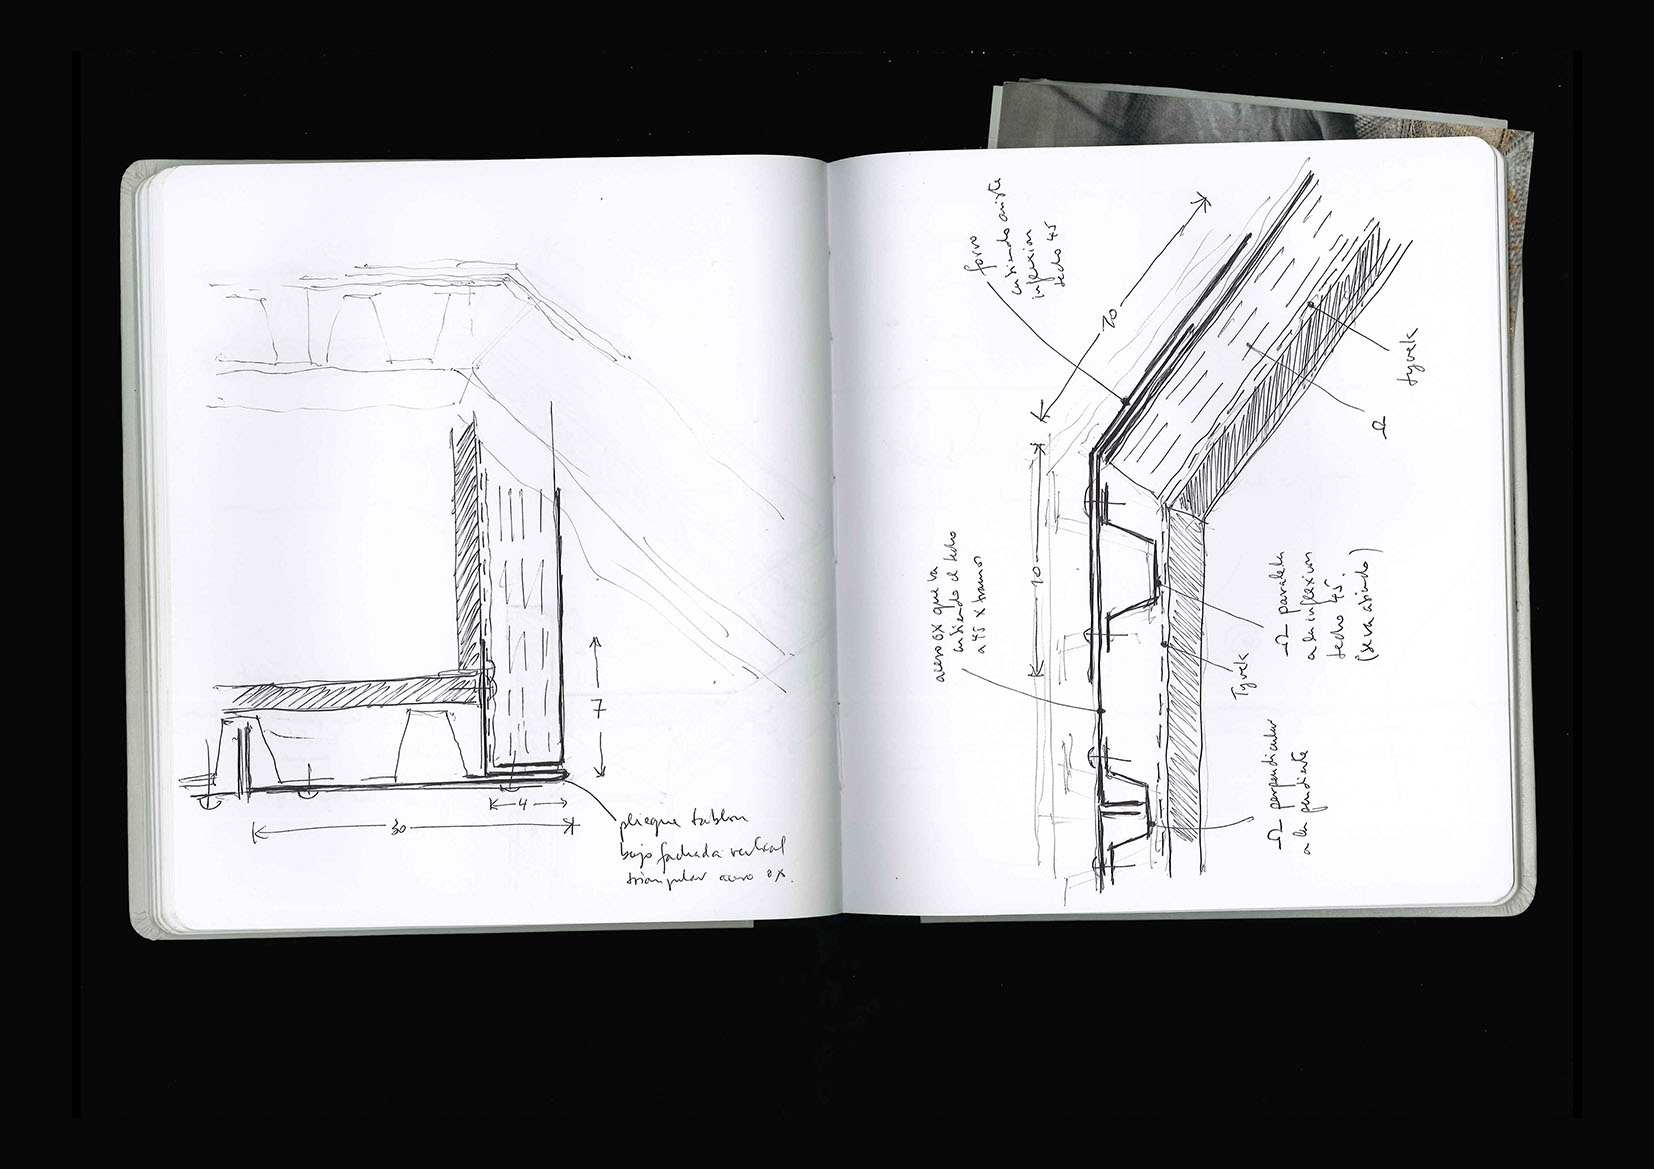 7
4
30
pliegue tablon
bajo fachada vertical
triangular acero ox.
forro
cubriendo arista
inflexion
techo 45
10
10
acero ox que va
cubriendo el techo
a 45 x tramos
tyvek
Ω
Ω paralela
a la inflexion
techo 45.
(se va abriendo)
Tyvek
Ω perpendicular
a la pendiente